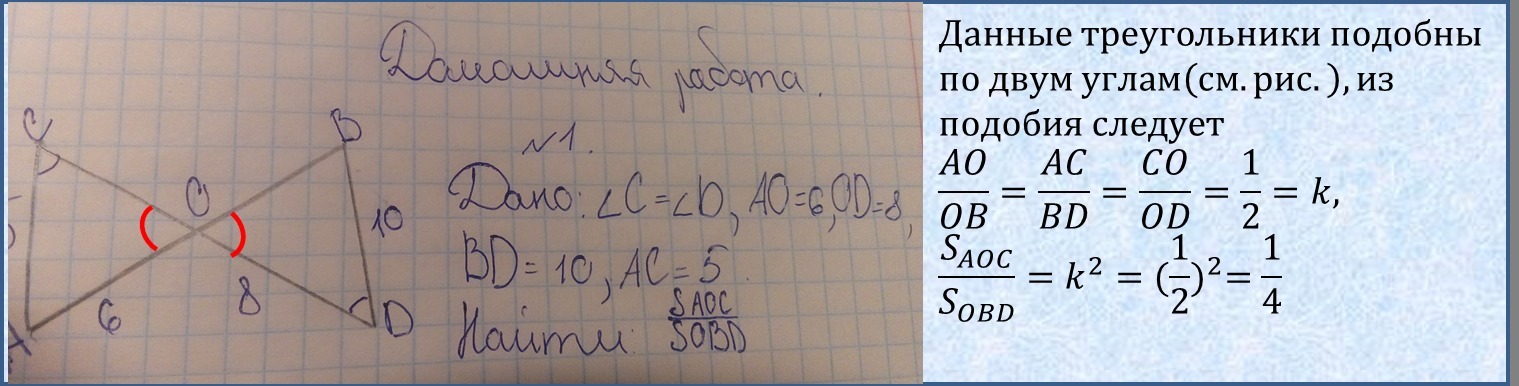 Домашняя работа.
№1.
Дано: ∠C=∠D, AO=6, OD=8,
BD=10, AC=5.
Найти: S AOC / S OBD
C
B
O
10
6
8
D
A
Данные треугольники подобны
по двум углам(см. рис. ), из
подобия следует
AO/OB = AC/BD = CO/OD = 1/2 = k,
S_AOC/S_OBD = k² = (1/2)² = 1/4